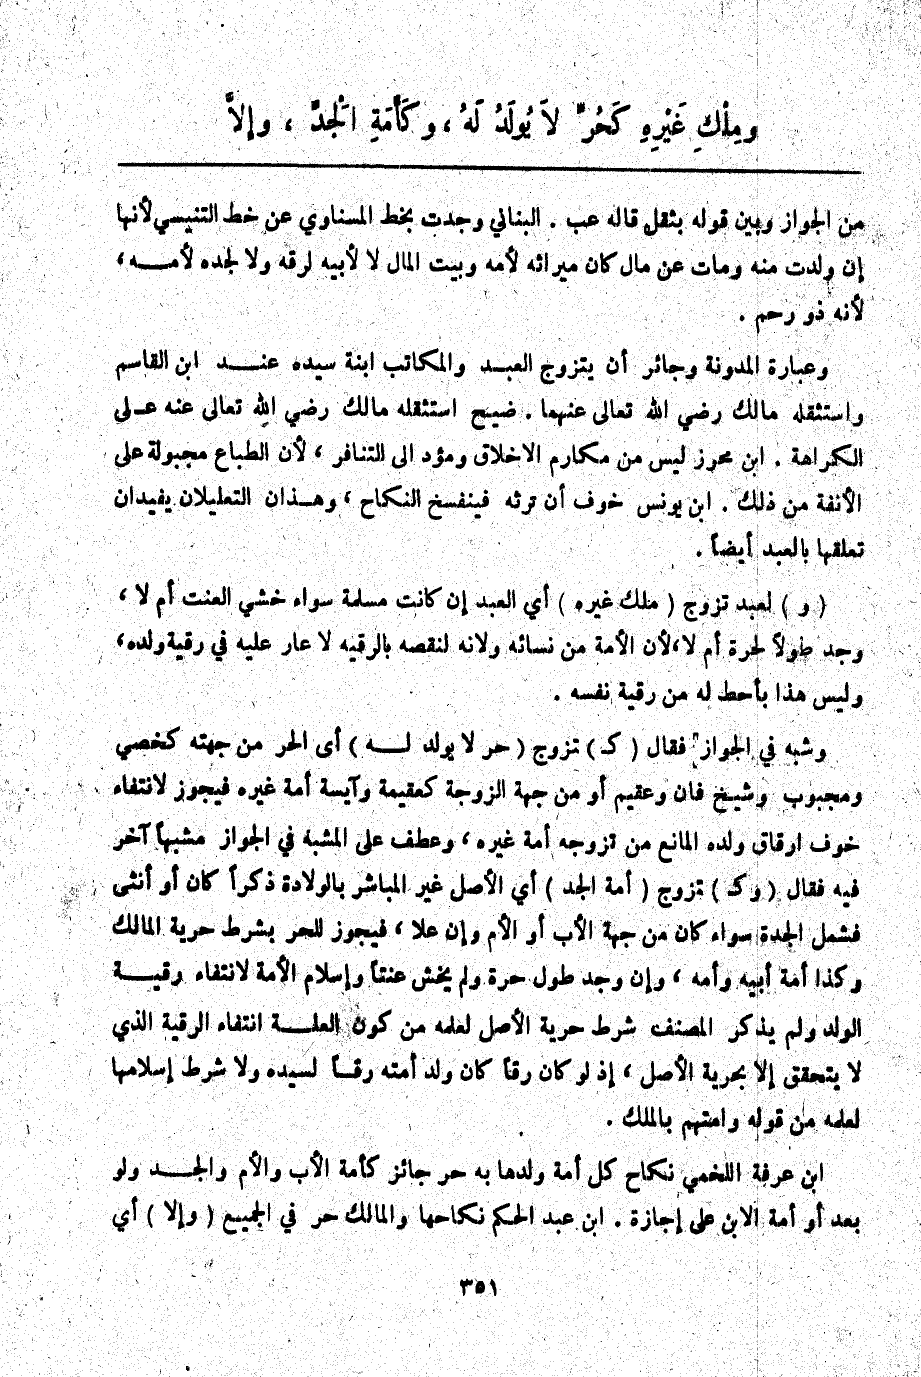 ومِلْكِ غَيْرِهِ كَحُرٍّ لاَ يُولَدُ لَهُ ، وكَأَمَةِ الْجَدِّ ، وإلاَّ
من الجواز وبين قوله بثقل قاله عب . البناني وجدت بخط المسناوي عن خط التنيسي لأنها
إن ولدت منه ومات عن مال كان ميراثه لأمه وبيت المال لا لأبيه لرقه ولا لجده لأمـــه ،
لأنه ذو رحم .
وعبارة المدونة وجائز أن يتزوج العبــد والمكاتب ابنة سيده عنــــد ابن القاسم
واستثقله مالك رضي الله تعالى عنهما . ضيح استثقله مالك رضي الله تعالى عنه عـلى
الكراهة . ابن محرز ليس من مكارم الاخلاق ومؤد الى التنافر ، لأن الطباع مجبولة على
الأنفة من ذلك . ابن يونس خوف أن ترثه فينفسخ النكاح ، وهــذان التعليلان يفيدان
تعلقها بالعبد أيضاً .
( و ) لعبد تزوج ( ملك غيره ) أي العبد إن كانت مسلمة سواء خشي العنت أم لا ،
وجد طولاً لحرة أم لا،لأن الأمة من نسائه ولانه لنقصه بالرقيه لا عار عليه في رقية ولده،
وليس هذا بأحط له من رقية نفسه .
وشبه في الجواز فقال ( كـ ) تزوج ( حر لا يولد لــــه ) أى الحر من جهته كخصي
ومجبوب وشيخ فان وعقيم أو من جهة الزوجة كعقيمة وآيسة أمة غيره فيجوز لانتفاء
خوف ارقاق ولده المانع من تزوجه أمة غيره ، وعطف على المشبه في الجواز مشبهاً آخر
فيه فقال ( وكـ ) تزوج ( أمة الجد ) أي الأصل غير المباشر بالولادة ذكراً كان أو أنثى
فشمل الجدة سواء كان من جهة الأب أو الأم وإن علا ، فيجوز للحر بشرط حرية المالك
وكذا أمة أبيه وأمه ، وإن وجد طول حرة ولم يخش عنتاً وإسلام الأمة لانتفاء رقيـــة
الولد ولم يذكر المصنف شرط حرية الأصل لعلمه من كون العلــــة انتفاء الرقية الذي
لا يتحقق إلا بحرية الأصل ، إذ لو كان رقاً كان ولد أمته رقــاً لسيده ولا شرط إسلامها
لعلمه من قوله وامتهم بالملك .
ابن عرفة اللخمي نكاح كل أمة ولدها به حر جائز كأمة الأب والأم والجــــد ولو
بعد أو أمة الابن على إجازة . ابن عبد الحكم نكاحها والمالك حر في الجميع ( وإلا ) أي
٣٥١